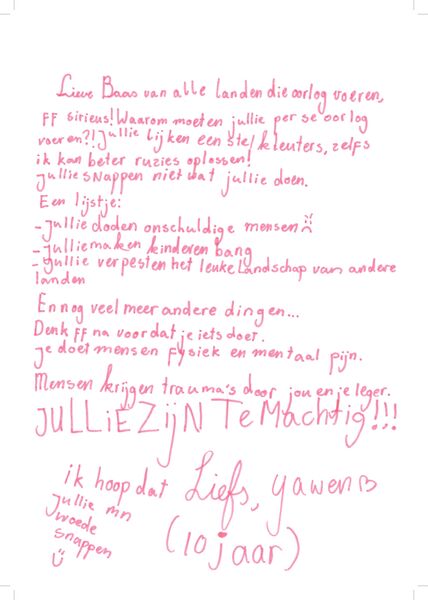 Lieve Baas van alle landen die oorlog voeren,
FF sirieus! Waarom moeten jullie per se oorlog
voeren?! Jullie lijken een stel kleuters, zelfs
ik kan beter ruzies oplossen!
Jullie snappen niet wat jullie doen.
Een lijstje:
- Jullie doden onschuldige mensen
- Jullie maken kinderen bang
- Jullie verpesten het leuke landschap van andere
landen
En nog veel meer andere dingen...
Denk FF na voordat je iets doet.
je doet mensen fysiek en mentaal pijn.
Mensen krijgen trauma's door jou en je leger.
JULLIE ZIJN TE MACHTIG!!!
Liefs, yawen
(10 jaar)
ik hoop dat
jullie mn
woede
snappen